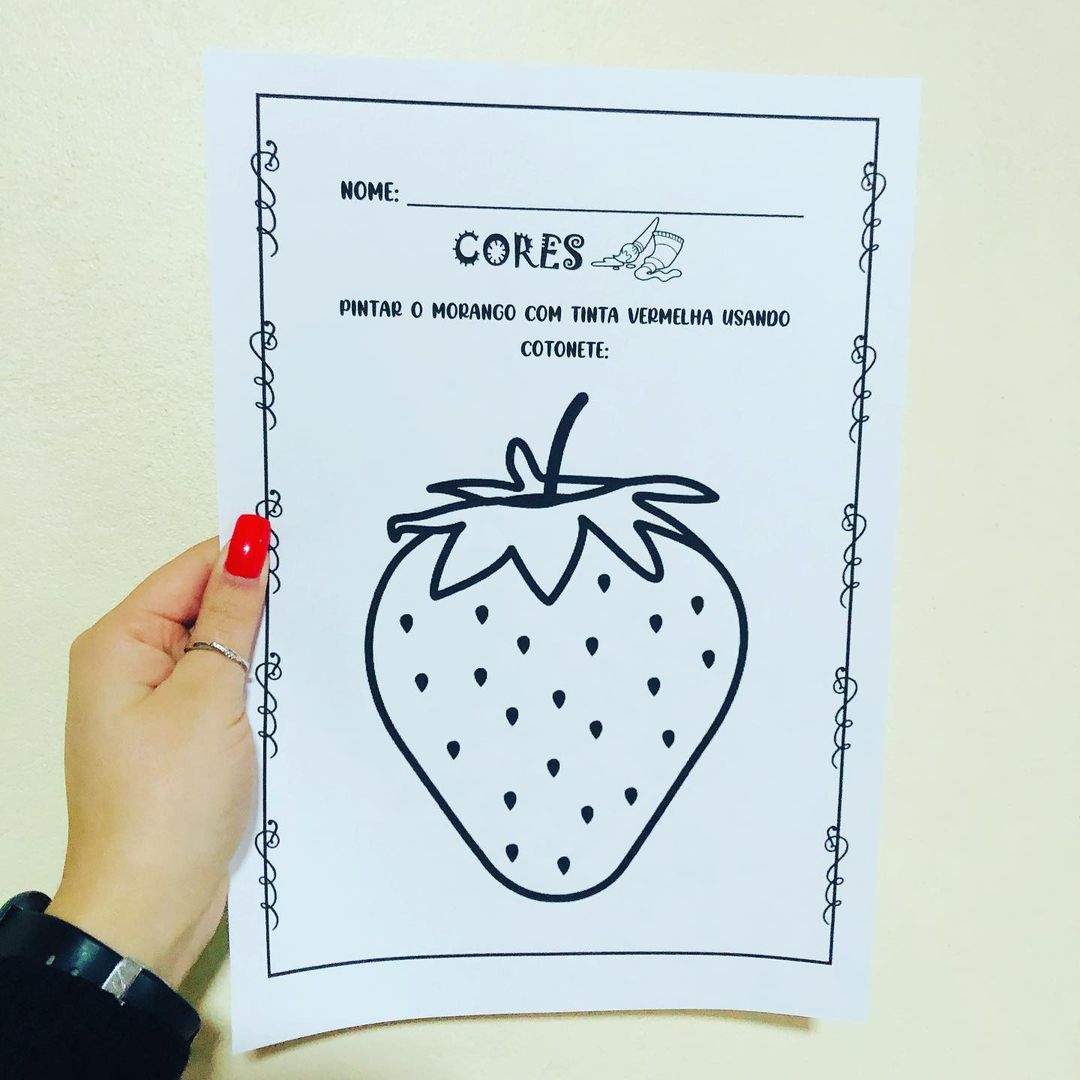 NOME:
CORES
PINTAR O MORANGO COM TINTA VERMELHA USANDO
COTONETE: